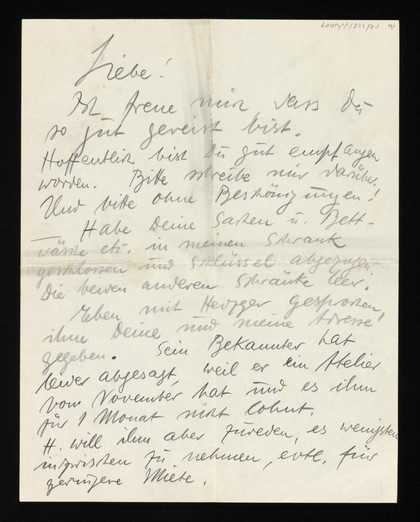 Liebe!
Ich freue mich dass Du
so gut gereist bist.
Hoffentlich bist Du gut empfangen
worden. Bitte schreibe mir darüber.
Und bitte ohne Beschönigungen!
Habe Deine Sachen u. Bett-
wäsche etc. in meinen Schrank
geschlossen und Schlüssel abgezogen.
Die beiden anderen Schränke leer.
Eben mit Herzger gesprochen,
ihm Deine und meine Adresse
gegeben. Sein Bekannter hat
leider abgesagt, weil er ein Atelier
vom November hat und es ihm
für 1 Monat nicht lohnt.
H. will ihm aber zureden, es wenigstens
inzwischen zu nehmen, evtl. für
geringere Miete.